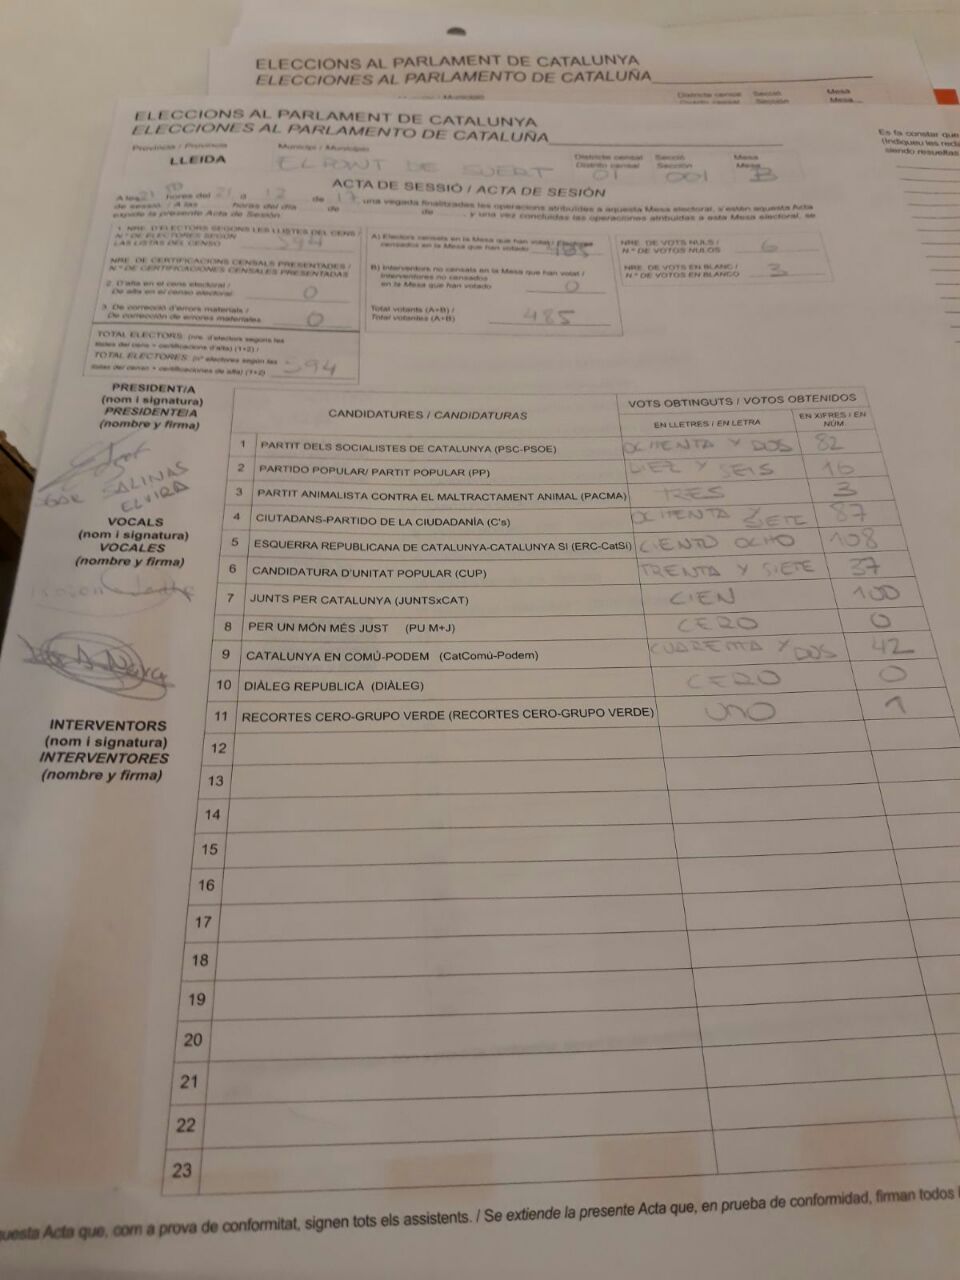 ELECCIONS AL PARLAMENT DE CATALUNYA
ELECCIONES AL PARLAMENTO DE CATALUÑA
Mesa
ELECCIONS AL PARLAMENT DE CATALUNYA
ELECCIONES AL PARLAMENTO DE CATALUÑA
Es fa constar que
(Indiqueu les recl
siendo resueltas
Província / Provincia Municipi / Municipio Districte censal Secció Mesa
Distrito censal Sección Mesa
LLEIDA EL PONT DE SUERT 01 001 B
ACTA DE SESSIÓ / ACTA DE SESIÓN
A les 21 hores del 21 d 12 de 17, una vegada finalitzades les operacions atribuïdes a aquesta Mesa electoral, s'estén aquesta Acta
de sessió. / A las horas del día de de y una vez concluidas las operaciones atribuidas a esta Mesa electoral, se
expide la presente Acta de Sesión.
1. NRE. D'ELECTORS SEGONS LES LLISTES DEL CENS /
N.º DE ELECTORES SEGÚN
LAS LISTAS DEL CENSO 594
NRE. DE CERTIFICACIONS CENSALS PRESENTADES /
N.º DE CERTIFICACIONES CENSALES PRESENTADAS
2. D'alta en el cens electoral /
De alta en el censo electoral 0
3. De correcció d'errors materials /
De corrección de errores materiales 0
TOTAL ELECTORS (nre. d'electors segons les
llistes del cens + certificacions d'alta) (1+2) /
TOTAL ELECTORES (nº electores según las
listas del censo + certificaciones de alta) (1+2) 594
A) Electors censats en la Mesa que han votat /
censados en la Mesa que han votado 485
B) Interventors no censats en la Mesa que han votat /
Interventores no censados
en la Mesa que han votado 0
Total votants (A+B) /
Total votantes (A+B) 485
NRE. DE VOTS NULS /
N.º DE VOTOS NULOS 6
NRE. DE VOTS EN BLANC /
N.º DE VOTOS EN BLANCO 3
PRESIDENT/A
(nom i signatura)
PRESIDENTE/A
(nombre y firma)
SALINAS
ELVIRA
VOCALS
(nom i signatura)
VOCALES
(nombre y firma)
INTERVENTORS
(nom i signatura)
INTERVENTORES
(nombre y firma)
CANDIDATURES / CANDIDATURAS VOTS OBTINGUTS / VOTOS OBTENIDOS
EN LLETRES / EN LETRA EN XIFRES / EN NÚM.
1 PARTIT DELS SOCIALISTES DE CATALUNYA (PSC-PSOE) OCHENTA Y DOS 82
2 PARTIDO POPULAR/ PARTIT POPULAR (PP) DIEZ Y SEIS 16
3 PARTIT ANIMALISTA CONTRA EL MALTRACTAMENT ANIMAL (PACMA) TRES 3
4 CIUTADANS-PARTIDO DE LA CIUDADANÍA (C's) OCHENTA Y SIETE 87
5 ESQUERRA REPUBLICANA DE CATALUNYA-CATALUNYA SÍ (ERC-CatSí) CIENTO OCHO 108
6 CANDIDATURA D'UNITAT POPULAR (CUP) TRENTA Y SIETE 37
7 JUNTS PER CATALUNYA (JUNTSxCAT) CIEN 100
8 PER UN MÓN MÉS JUST (PU M+J) CERO 0
9 CATALUNYA EN COMÚ-PODEM (CatComú-Podem) CUARENTA Y DOS 42
10 DIÀLEG REPUBLICÀ (DIÀLEG) CERO 0
11 RECORTES CERO-GRUPO VERDE (RECORTES CERO-GRUPO VERDE) UNO 1
12
13
14
15
16
17
18
19
20
21
22
23
questa Acta que, com a prova de conformitat, signen tots els assistents. / Se extiende la presente Acta que, en prueba de conformidad, firman todos l